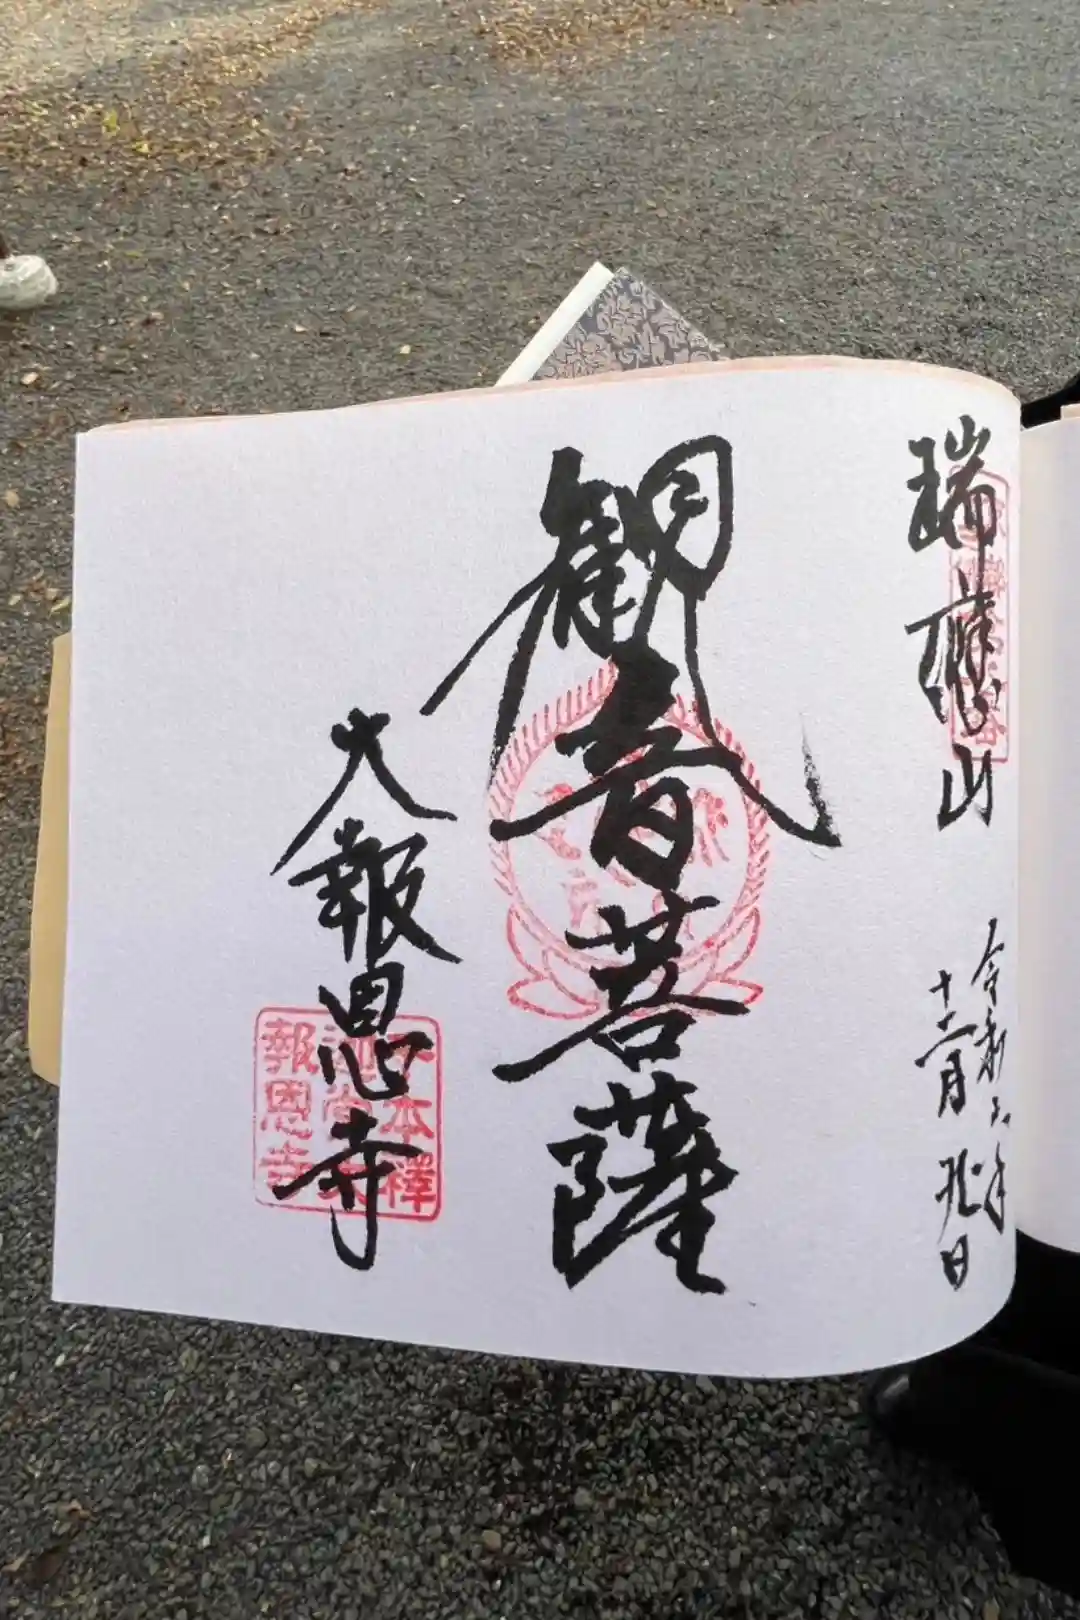 瑞應山
令和六年
十二月
日
観音菩薩
大報恩寺
本釋
報恩寺